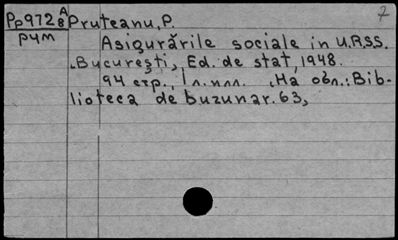 7
Pp972 A/8 Pruteanu, P.
рум Asigurările sociale in U.R.S.S.
București, Ed. de stat, 1948.
94 стр., 1 л. илл. На обл.: Bib-
lioteca de buzunar. 63,